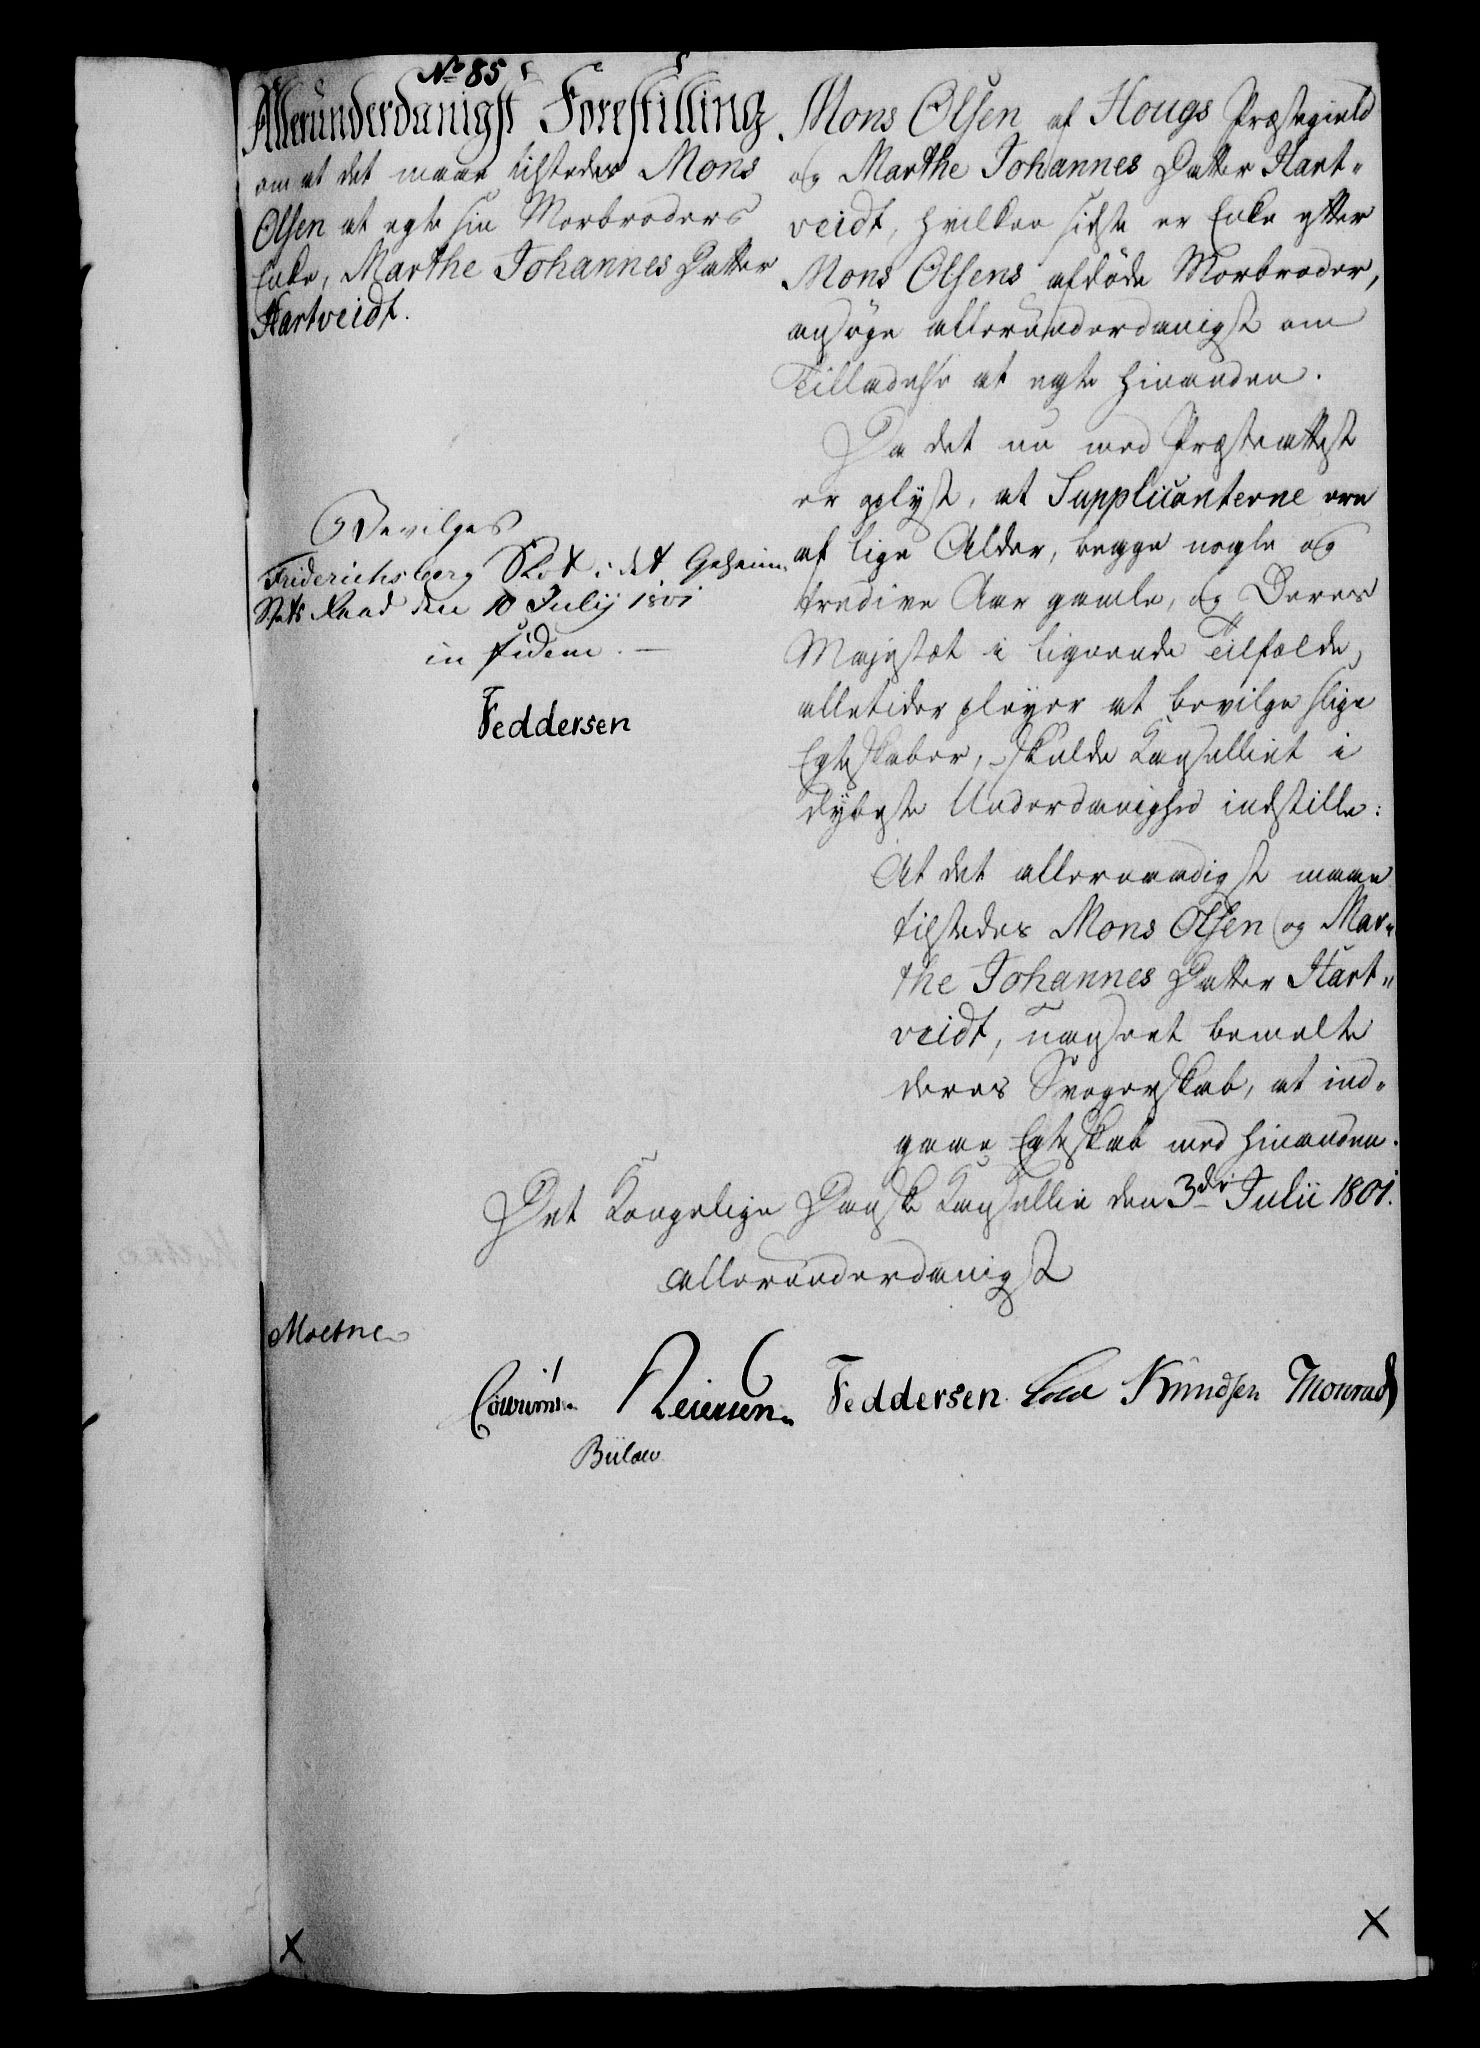 No 85
Allerunderdanigst Forestilling
om at det maae tilstedes Mons
Olsen at egte sin Morbroders
Enke, Marthe Johannes Datter
Hartveidt.
Bevilges
Friderichsberg Slot i det Geheime
Stats Raad den 10 Julij 1801
in fidem. —
Feddersen
Mons Olsen af Hougs Præstegield
og Marthe Johannes Datter Hart-
veidt, hvilken sidste er Enke efter
Mons Olsens afdöde Morbroder,
ansöge allerunderdanigst om
Tilladelse at egte hinanden.
Da det nu med Præsteattest
er oplyst, at Supplicanterne ere
af lige Alder, begge nogle og
tredive Aar gamle, og Deres
Majestæt i lignende Tilfælde,
alletider pleyer at bevilge slige
Egteskaber, skulde Cancelliet i
dybeste Underdanighed indstille:
At det allernaadigst maae
tilstedes Mons Olsen og Mar-
the Johannes Datter Hart-
veidt, uanseet bemelte
deres Svogerskab, at ind-
gaae Egteskab med hinanden.
Det Kongelige Danske Cancellie den 3die Julii 1801.
allerunderdanigst
Moesne
Reiersen Feddersen Knudsen Monrad
Bülow
X X